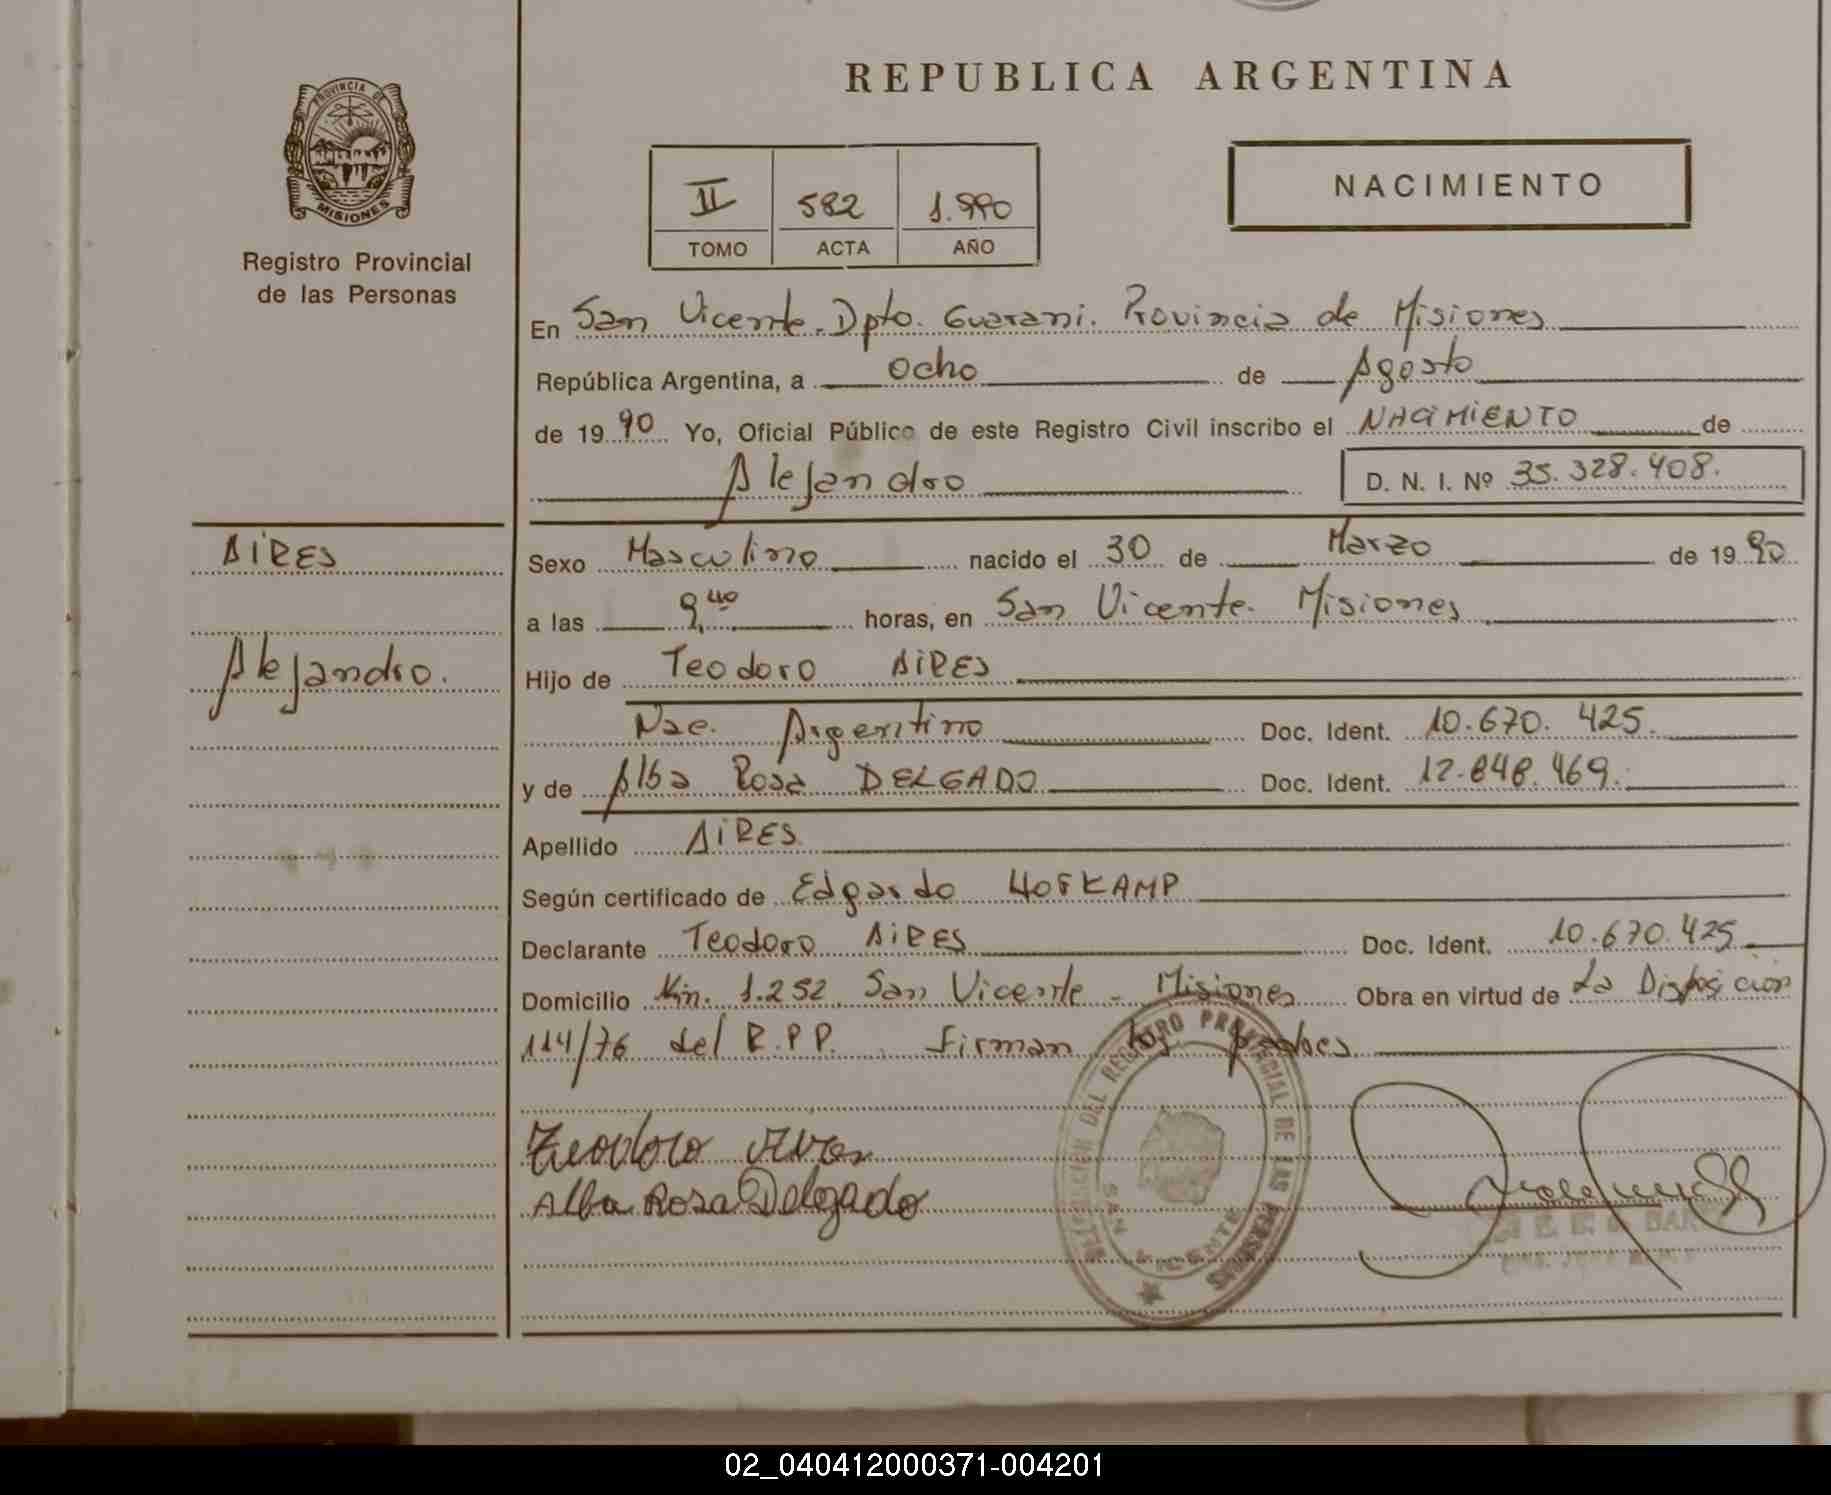 REPUBLICA ARGENTINA
PROVINCIA DE
MISIONES
Registro Provincial
de las Personas
II 582 1.990
TOMO ACTA AÑO
NACIMIENTO
En San Vicente. Dpto. Guarani. Provincia de Misiones
República Argentina, a ocho de Agosto
de 19 90 Yo, Oficial Público de este Registro Civil inscribo el NACIMIENTO de
Alejandro D. N. I. Nº 35.328.408.
AIRES
Alejandro.
Sexo Masculino nacido el 30 de Marzo de 19 90
a las 9,40 horas, en San Vicente. Misiones
Hijo de Teodoro AIRES
Nac. Argentino Doc. Ident. 10.670.425.
y de Alba Rosa DELGADO Doc. Ident. 12.848.469.
Apellido AIRES
Según certificado de Edgardo HOFKAMP
Declarante Teodoro AIRES Doc. Ident. 10.670.425
Domicilio Km. 1.252 San Vicente - Misiones Obra en virtud de La Disposición
114/76 del R.P.P. Firman los padres
Teodoro Aires
Alba Rosa Delgado
DEL REGISTRO PROVINCIAL DE LAS PERSONAS
SAN VICENTE
02_040412000371-004201